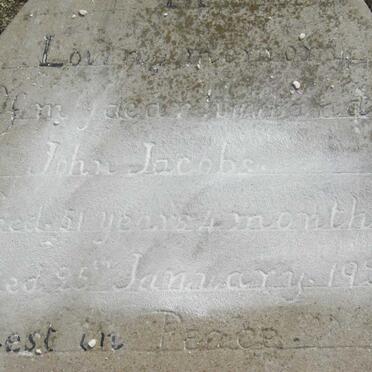 In
Loving memory
Of my dear husband
John Jacobs.
ed. 51 years 4 month
ed 25th January. 19
est in Peace.